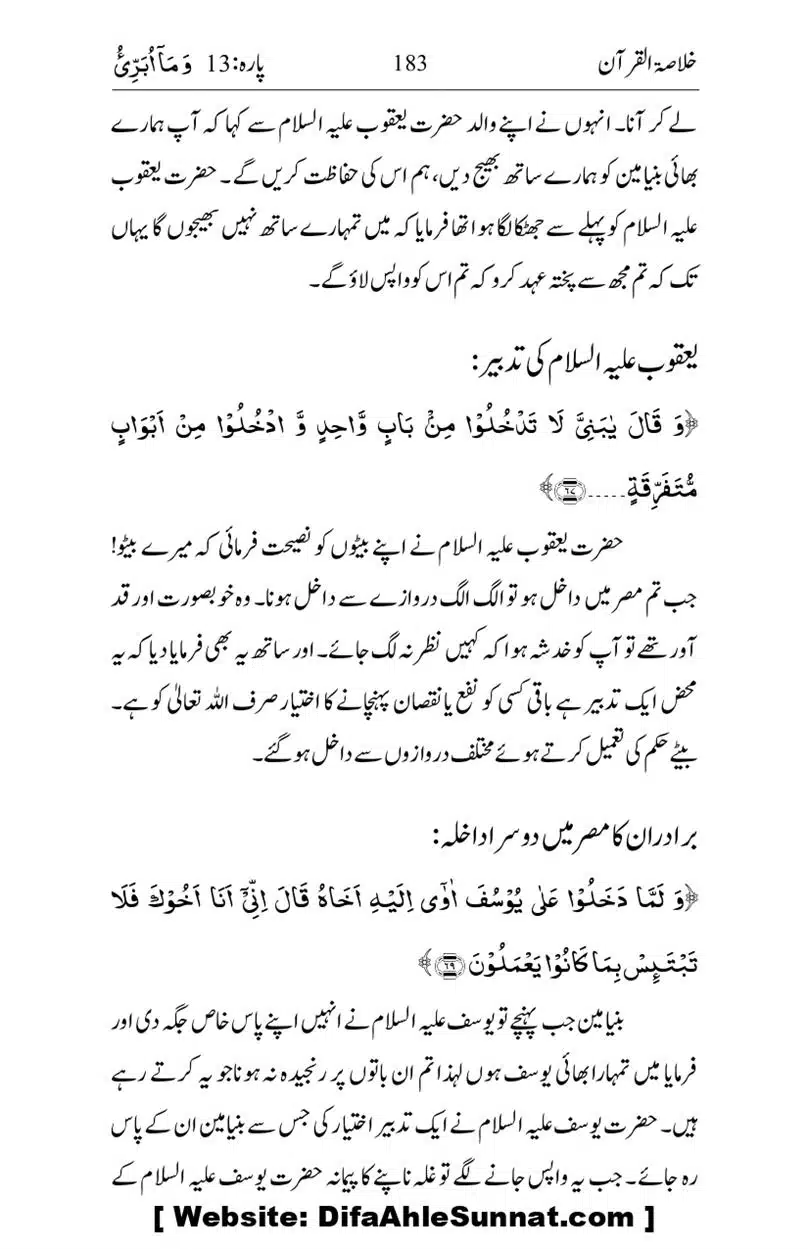 خلاصۃ القرآن 183 پارہ:13 وَ مَاۤ اُبَرِّئُ
لے کر آنا۔ انہوں نے اپنے والد حضرت یعقوب علیہ السلام سے کہا کہ آپ ہمارے
بھائی بنیامین کو ہمارے ساتھ بھیج دیں، ہم اس کی حفاظت کریں گے۔ حضرت یعقوب
علیہ السلام کو پہلے سے جھٹکا لگا ہوا تھا فرمایا کہ میں تمہارے ساتھ نہیں بھیجوں گا یہاں
تک کہ تم مجھ سے پختہ عہد کرو کہ تم اس کو واپس لاؤ گے۔
یعقوب علیہ السلام کی تدبیر:
﴿وَ قَالَ یٰبَنِیَّ لَا تَدْخُلُوْا مِنْۢ بَابٍ وَّاحِدٍ وَّ ادْخُلُوْا مِنْ اَبْوَابٍ
مُّتَفَرِّقَةٍ.....﴿۶۷﴾﴾
حضرت یعقوب علیہ السلام نے اپنے بیٹوں کو نصیحت فرمائی کہ میرے بیٹو!
جب تم مصر میں داخل ہو تو الگ الگ دروازے سے داخل ہونا۔ وہ خوبصورت اور قد
آور تھے تو آپ کو خدشہ ہوا کہ کہیں نظر نہ لگ جائے۔ اور ساتھ یہ بھی فرما دیا کہ یہ
محض ایک تدبیر ہے باقی کسی کو نفع یا نقصان پہنچانے کا اختیار صرف اللہ تعالیٰ کو ہے۔
بیٹے حکم کی تعمیل کرتے ہوئے مختلف دروازوں سے داخل ہو گئے۔
برادران کا مصر میں دوسرا داخلہ:
﴿وَ لَمَّا دَخَلُوْا عَلٰی یُوْسُفَ اٰوٰۤی اِلَیْهِ اَخَاهُ قَالَ اِنِّیْۤ اَنَا اَخُوْكَ فَلَا
تَبْتَىِٕسْ بِمَا كَانُوْا یَعْمَلُوْنَ﴿۶۹﴾﴾
بنیامین جب پہنچے تو یوسف علیہ السلام نے انہیں اپنے پاس خاص جگہ دی اور
فرمایا میں تمہارا بھائی یوسف ہوں لہذا تم ان باتوں پر رنجیدہ نہ ہونا جو یہ کرتے رہے
ہیں۔ حضرت یوسف علیہ السلام نے ایک تدبیر اختیار کی جس سے بنیامین ان کے پاس
رہ جائے۔ جب یہ واپس جانے لگے تو غلہ ناپنے کا پیمانہ حضرت یوسف علیہ السلام کے
[ Website: DifaAhleSunnat.com ]